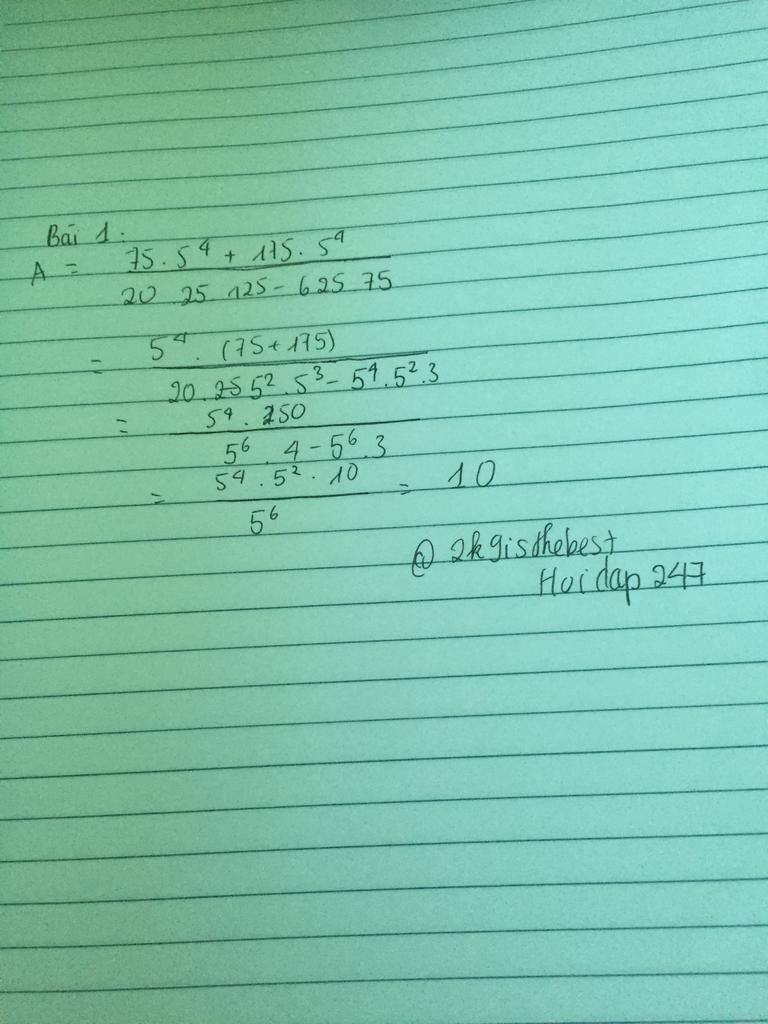 Bài 1:
A = 75 . 5^4 + 175 . 5^4
20 25 125 - 625 75
= 5^4 . (75 + 175)
20 . 25 5^2 . 5^3 - 5^4 . 5^2 . 3
= 5^4 . 250
5^6 . 4 - 5^6 . 3
= 5^4 . 5^2 . 10 = 10
5^6
@ 2k9isthebest
Hoidap 247